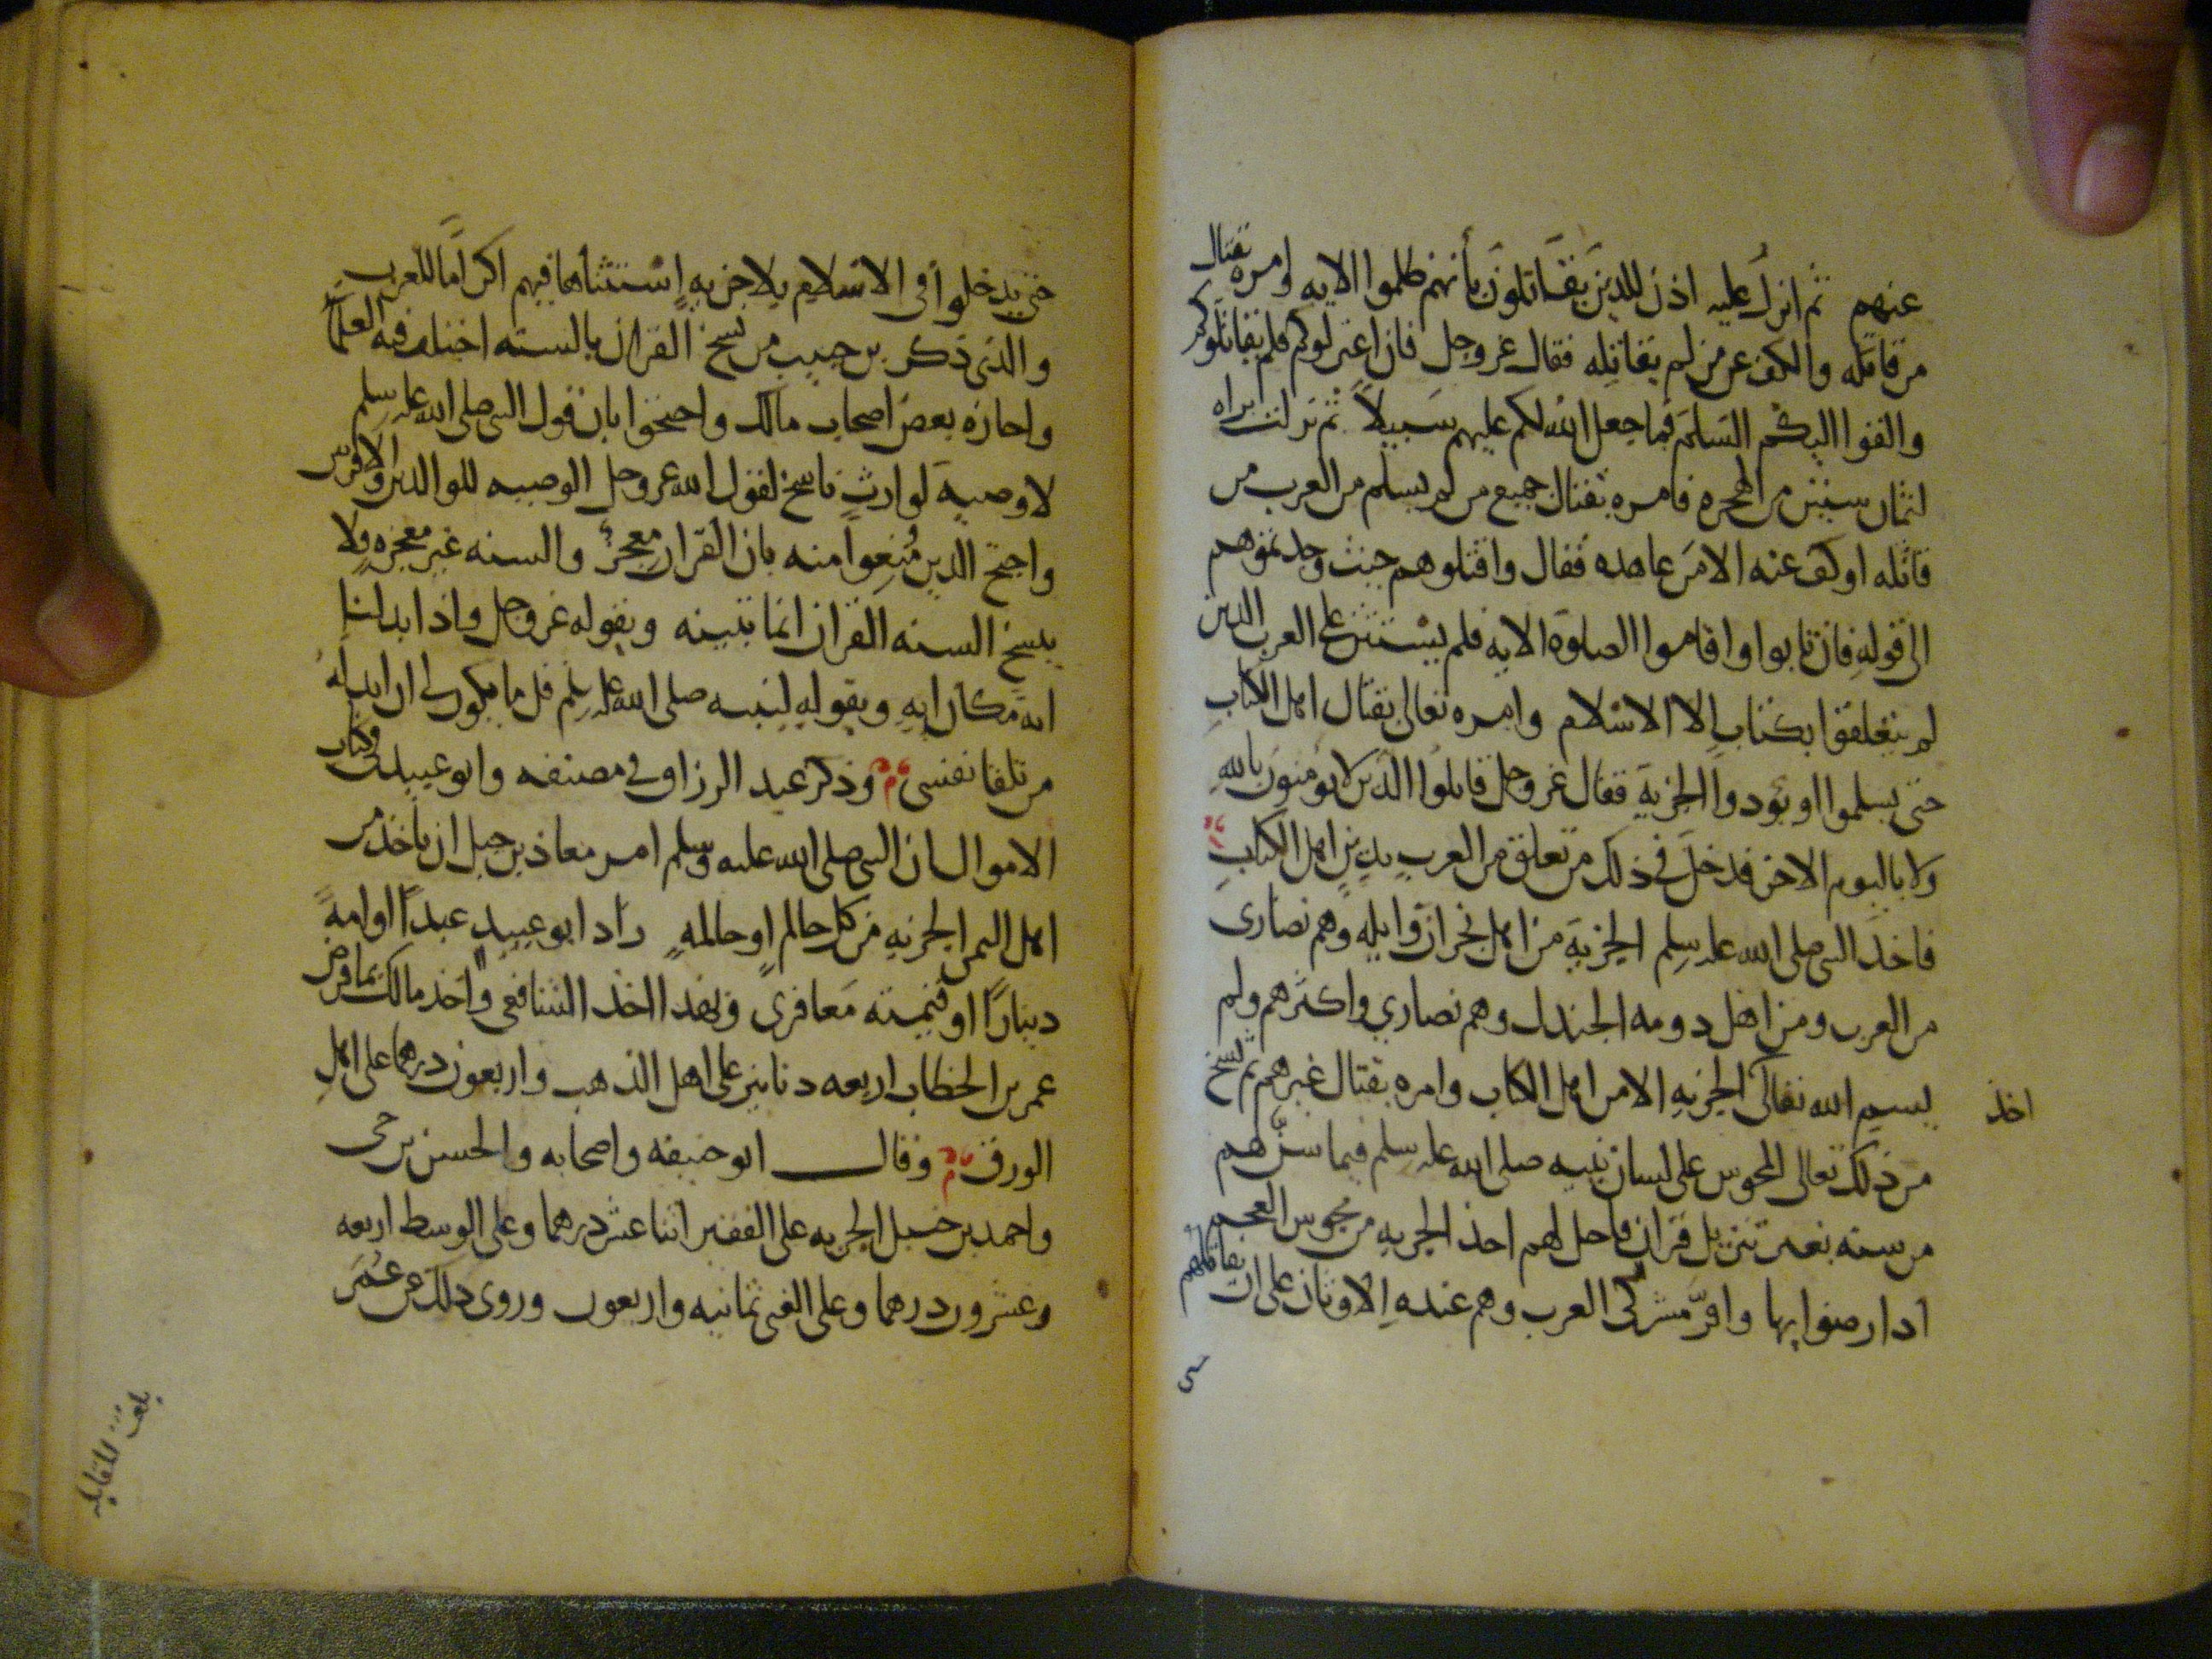 عنهم ثم انزل عليه اذن للذين يقاتلون بأنهم ظلموا الايه وامره بقتال
من قاتله والكف عن من لم يقاتله فقال عز وجل فان اعتزلوكم فلم يقاتلوكم
والقوا اليكم السلم فما جعل الله لكم عليهم سبيلاً ثم نزلت براه
لثمان سنين من الهجره فامره بقتال جميع من لم يسلم من العرب من
قاتله او كف عنه الا من عاهده فقال واقتلوهم حيث وجدتموهم
الى قوله فان تابوا واقاموا الصلوة الايه فلم يستثن على العرب الذين
لم يتعلقوا بكتاب الا الاسلام وامره تعالى بقتال اهل الكتاب
حتى يسلموا او يودوا الجزية فقال عز وجل قاتلوا الذين لا يومنون بالله
ولا باليوم الاخر فدخل في ذلك من تعلق من العرب بدين اهل الكتاب
فاخذ النبى صلى الله عليه سلم الجزية من اهل نجران وايله وهم نصارى
من العرب ومن اهل دومه الجندل وهم نصاري واكثرهم ولم
يسم الله تعالى الجزيه الا من اهل الكتاب وامره بقتال غيرهم ثم نسخ
اخذ
من ذلك تعالى المجوس على لسان نبيه صلى الله عليه سلم فيما سن لهم
من سنه بغير تنزيل قران فاحل لهم اخذ الجزيه من مجوس العجم
اذا رضوا بها واقر مشركى العرب وهم عنده الاوثان على ان يقاتلهم
حتى يدخلوا فى الاسلام بلا جزيه استثناها فيهم اكراما للعرب
والذى ذكر بن حبيب من نسخ القران بالسنه اختلف فيه العلماء
واجازه بعض اصحاب مالك واحتجوا بان قول النبى صلى الله عليه سلم
لا وصية لوارث ناسخ لقول الله عز وجل الوصيه للوالدين والاقربين
واحتج الذين مُنعوا منه بان القران معجز والسنه غير معجزه ولا
ينسخ السنه القران انما تبينه وبقوله عز وجل واذا بدلنا
اية مكان ايه وبقوله لنبيه صلى الله عليه سلم قل ما يكون لى ان ابدله
من تلقا نفسى وذكر عبد الرزاق في مصنفه وابو عبيد فى كتاب
الاموال ان النبى صلى الله عليه وسلم امر معاذ بن جبل ان ياخذ من
اهل اليمن الجزيه من كل حالم او حالمه زاد ابو عبيد عبداً او امة
ديناراً او قيمته معافرى وبهذا اخذ الشافعى واخذ مالك بما فرض
عمر بن الخطاب اربعه دنانير على اهل الذهب واربعون درهما على اهل
الورق وقال ابو حنيفه واصحابه والحسن بن حى
واحمد بن حنبل الجزيه على الفقير اثنا عشر درهما وعلى الوسط اربعه
وعشرون درهما وعلى الغنى ثمانيه واربعون وروى ذلك عن عُمَر